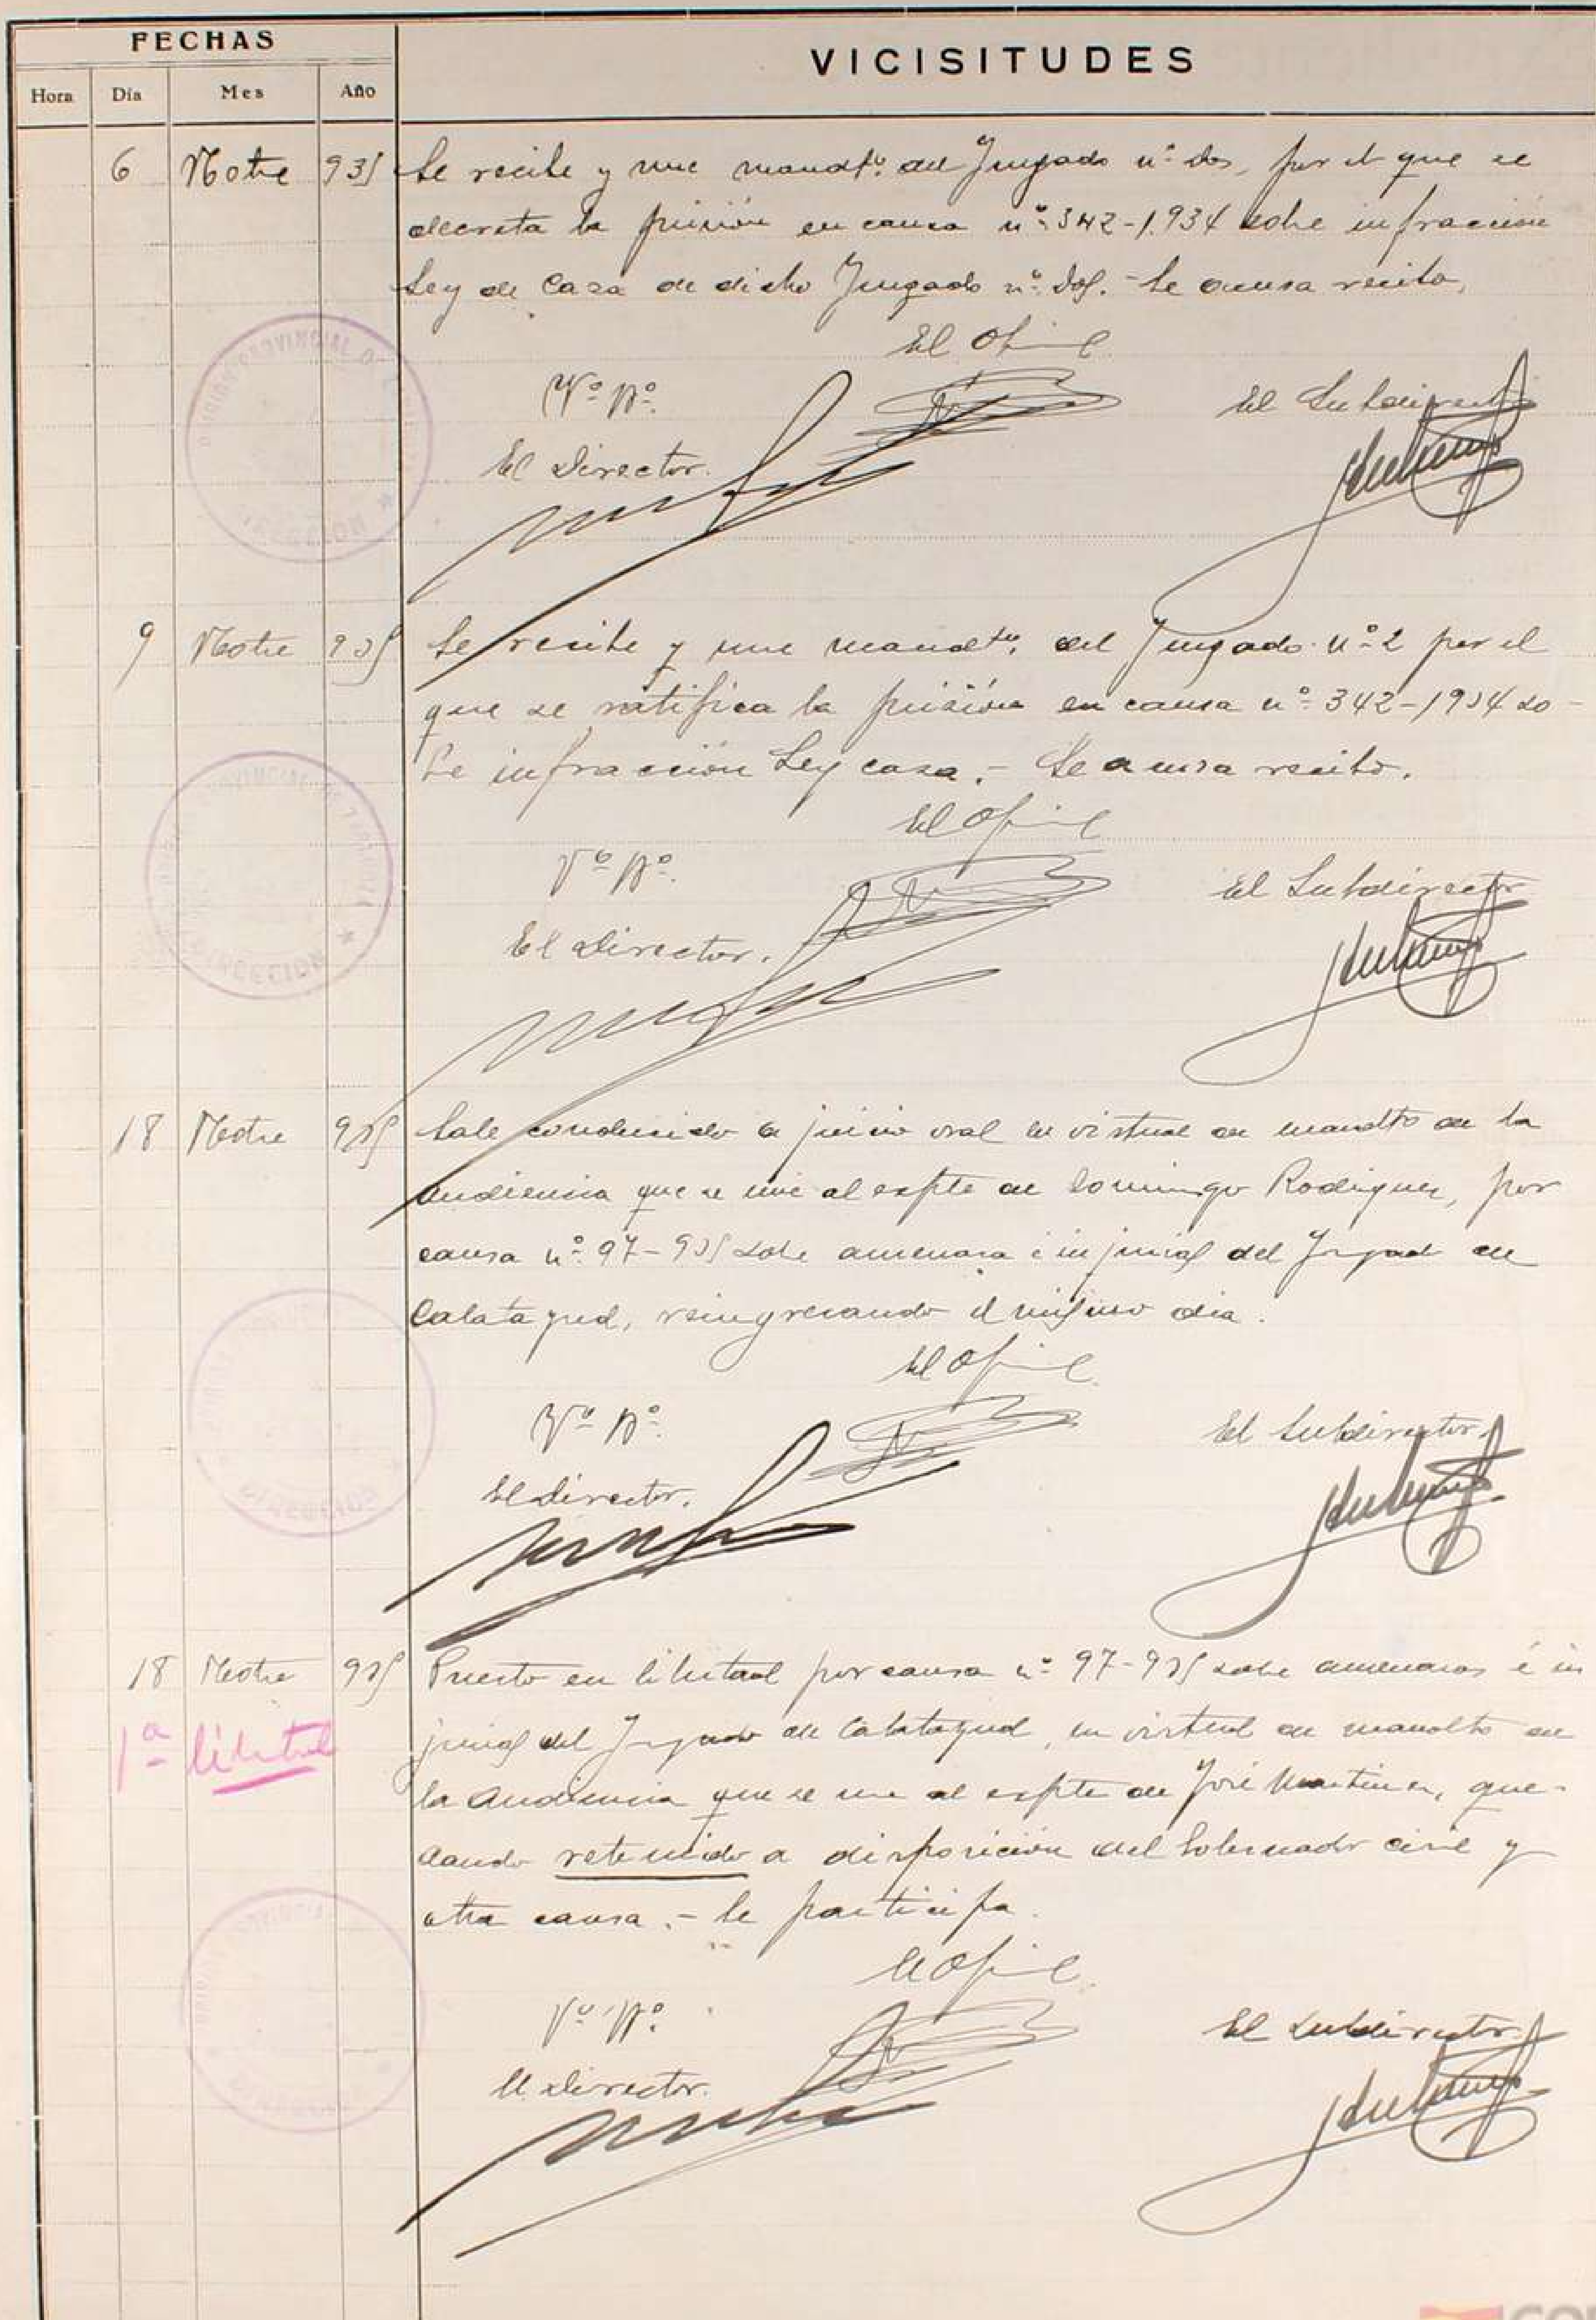 FECHAS
VICISITUDES
Hora Día Mes Año
6 Nbre 935 Se recibe y une mandtº del Juzgado nº dos, por el que se
decreta la prisión en causa nº 342-1.934 sobre infracción
Ley de Caza de dicho Juzgado nº dos.- Se acusa recibo,
El Ofic
Vº Bº
El Subdirector
El Director.
DIRECCION
9 Nbre 935 Se recibe y une mandtº del Juzgado nº 2 por el
que se ratifica la prisión en causa nº 342-1934 so-
bre infracción Ley caza.- Se acusa recibo.
El Ofic
Vº Bº.
El Subdirector
El Director.
DIRECCION
18 Nbre 935 Sale conducido a juicio oral en virtud de mandtº de la
Audiencia que se une al expte de Domingo Rodriguez, por
causa nº 97-935 sobre amenaza é injurias del Juzgado de
Calatayud, reingresando el mismo dia.
El Ofic
Vº Bº
El Subdirector
El Director.
DIRECCION
18 Nbre 935 Puesto en libertad por causa nº 97-935 sobre amenazas é in
1ª libertad
jurias del Juzgado de Calatayud, en virtud de mandto de
la Audiencia que se une al expte de José Martinez, que-
dando retenido a disposición del Gobernador civil y
otra causa.- Se participa.
El Ofic
Vº Bº
El Subdirector
El Director.
DIRECCION